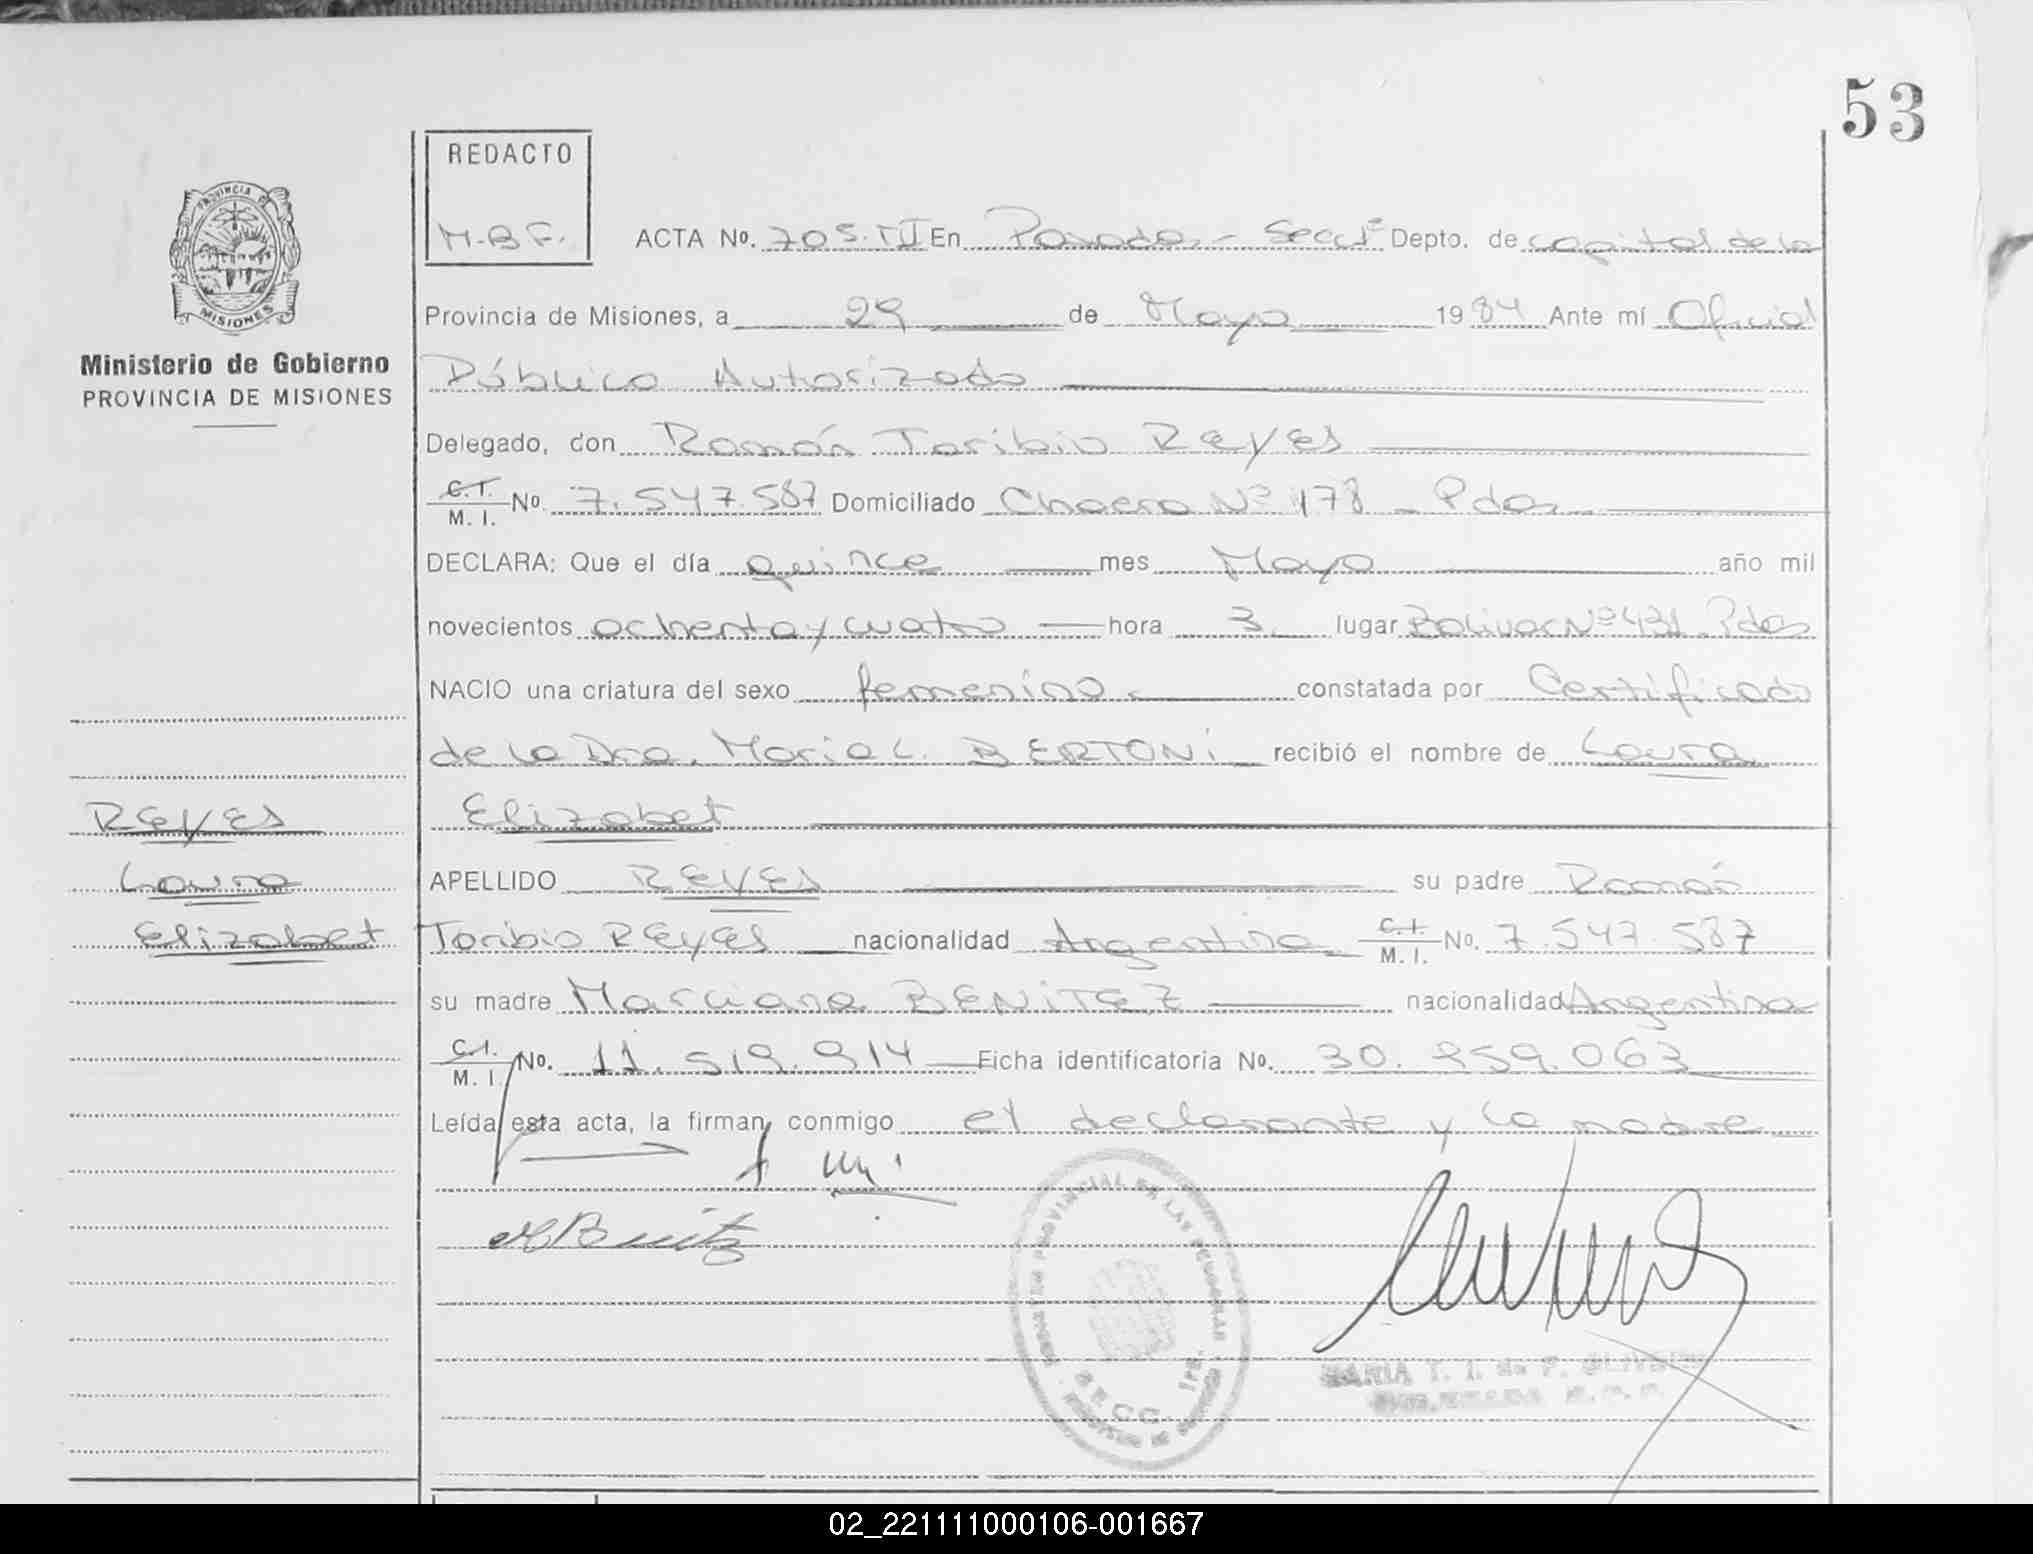 53
REDACTO
M.B.F.
PROVINCIA DE
MISIONES
Ministerio de Gobierno
PROVINCIA DE MISIONES
ACTA No. 705. III En Posadas - Secc 1ª Depto. de capital de la
Provincia de Misiones, a 29 de Mayo 1984 Ante mí Oficial
Público Autorizado
Delegado, don Ramón Toribio REYES
C.I. M. I. No. 7.547.587 Domiciliado Chacra Nº 178 - Pdas
DECLARA: Que el día quince mes Mayo año mil
novecientos ochenta y cuatro hora 3 lugar Bolivar Nº 431 Pdas
NACIO una criatura del sexo femenino constatada por Certificado
de la Dra. Maria L. BERTONi recibió el nombre de Laura
Elizabet
APELLIDO REYES su padre Ramón
Toribio REYES nacionalidad Argentina C.I. M. I. No. 7.547.587
su madre Marciana BENiTEZ nacionalidad Argentina
C.I. M. I. No. 11.519.914 Ficha identificatoria No. 30.959.063
Leída esta acta, la firman conmigo el declarante y la madre
REYES
Laura
Elizabet
PROVINCIAL DE LAS PERSONAS
SECC. 1ra.
MARIA T. I. de F.
02_221111000106-001667